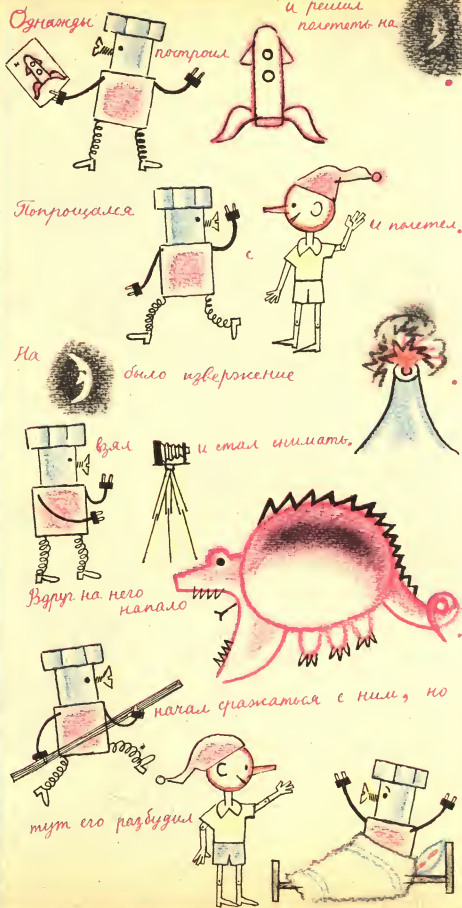 Однажды
построил
и решил
полететь на
Попрощался
с
и полетел.
На
было извержение
взял
и стал снимать.
Вдруг на него
напало
начал сражаться с ним, но
тут его разбудил